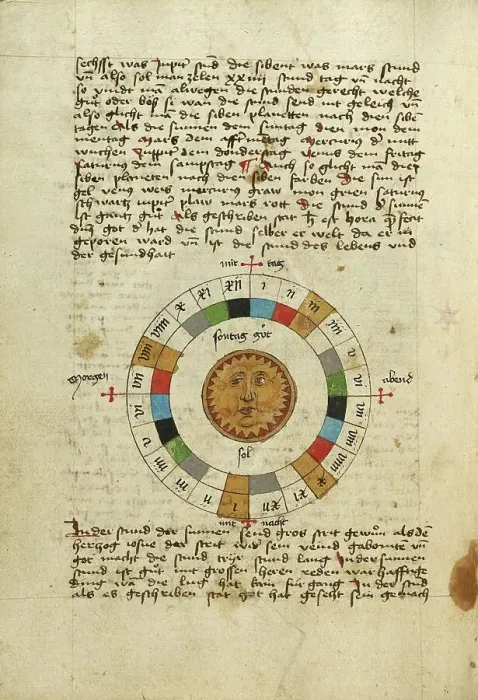 sechsst was Jupiter stund die sibent was mars stund
vn̄ also sol man zelen xxiiii stund tag vn̄ nacht
so vindt mā alwegen die stunden gerecht welche
gůt oder böß si wan die stund send nit geleich vn̄
also glicht mā die siben planetten nach den sibē
tagen Als die sunnen dem suntag dien mon dem
mentag Mars dem afftmētag Mercurius d mitt
wuchen Juppiter dem donderstag Venus dem fritag
saturnus dem sampstag ¶ Auch so glicht mā diey
siben planeten nach den siben farben Die sun ist
gel venus weis mercurius graw mon grien saturnus
schwartz jupiter plaw mars rott die stund d sunnen
ist gantz gůt Als geschriben stat est hora
got d hat die stund selber er welt da er in
geporen ward vn̄ ist die stund des lebens und
der gesundhait
mit tag
xii i ii iii iiii v vi vii viii x xi xii i ii iii iiii v vi vii viii viiii x xi
Morgen
abend
sontag gůt
sol
mit nacht
In der stund der sunnen send gros strit gewun̄ als dē
herzog iosue der streit wid sein veind gabonite vn̄
got macht die stund trier stund lang In der sunnen
stund ist gůt mit grossen heren reden warhafftige
ding wā die lug hat kain für gang In der stund
als es geschriben stat got hat gesecht sein gemach